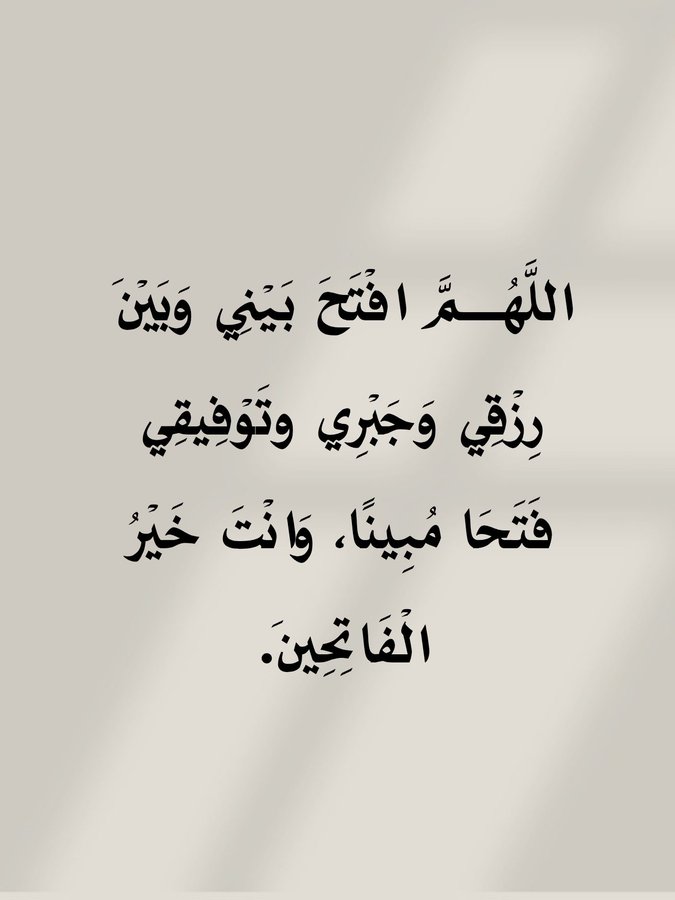 اللَّهُـــمَّ افْتَحَ بَيْنِي وَبَيْنَ
رِزْقِي وَجَبْرِي وتَوْفِيقِي
فَتَحَا مُبِينًا، وَانْتَ خَيْرُ
الْفَاتِحِينَ.